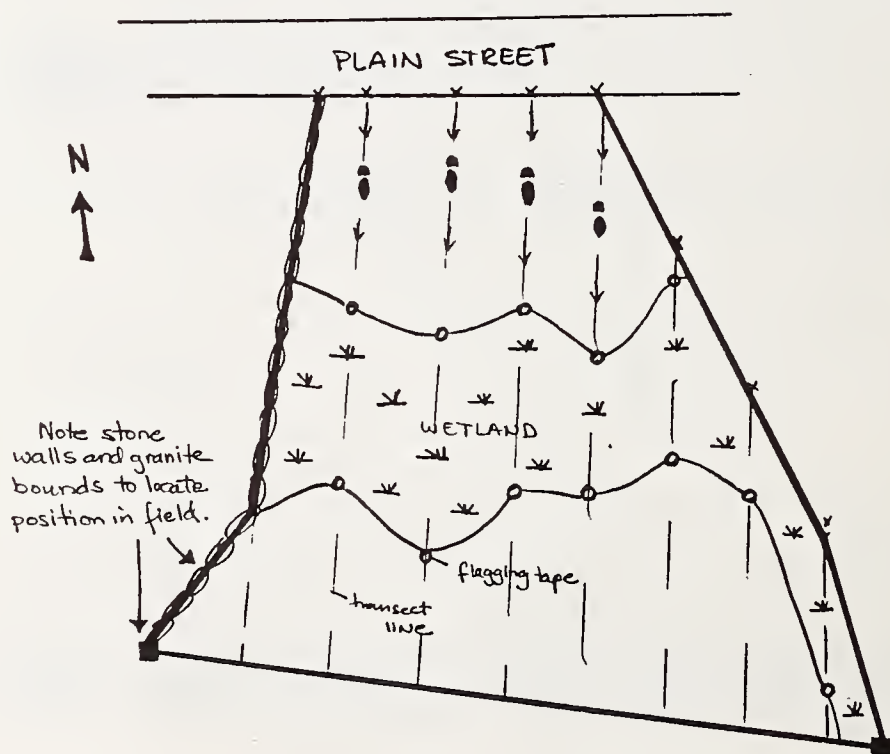 PLAIN STREET
N
Note stone
walls and granite
bounds to locate
position in field.
WETLAND
flagging tape
transect
line